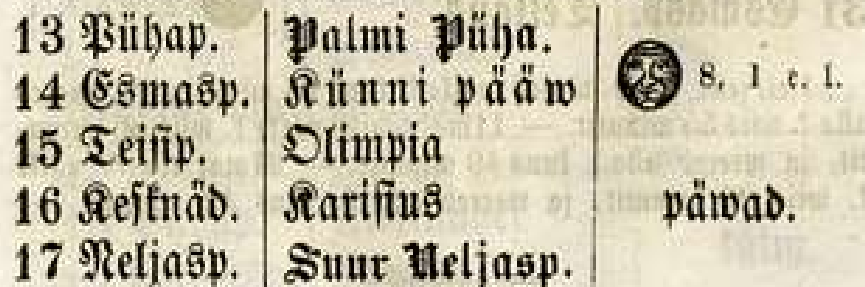 13 Pühap. Palmi Püha.
14 Esmasp. Künni pääw 8, 1 e. l.
15 Teisip. Olimpia
16 Kesknäd. Karisius päwad.
17 Neljasp. Suur Neljasp.